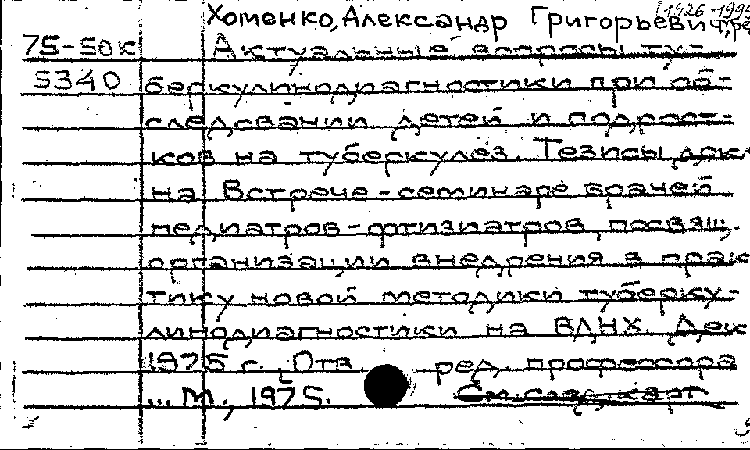 Хоменко, Александр Григорьевич,
75-50к Актуальные вопросы ту-
5340 беркулинодиагностики при об-
следовании детей и подрост-
ков на туберкулез. Тезисы докл
на Встрече-семинаре врачей
педиатров-фтизиатров, посвящ.
организации внедрения в прак
тику новой методики туберку-
линодиагностики на ВДНХ. Дек
1975 г. [Отв ред. профессора
... М., 1975. См. след. карт